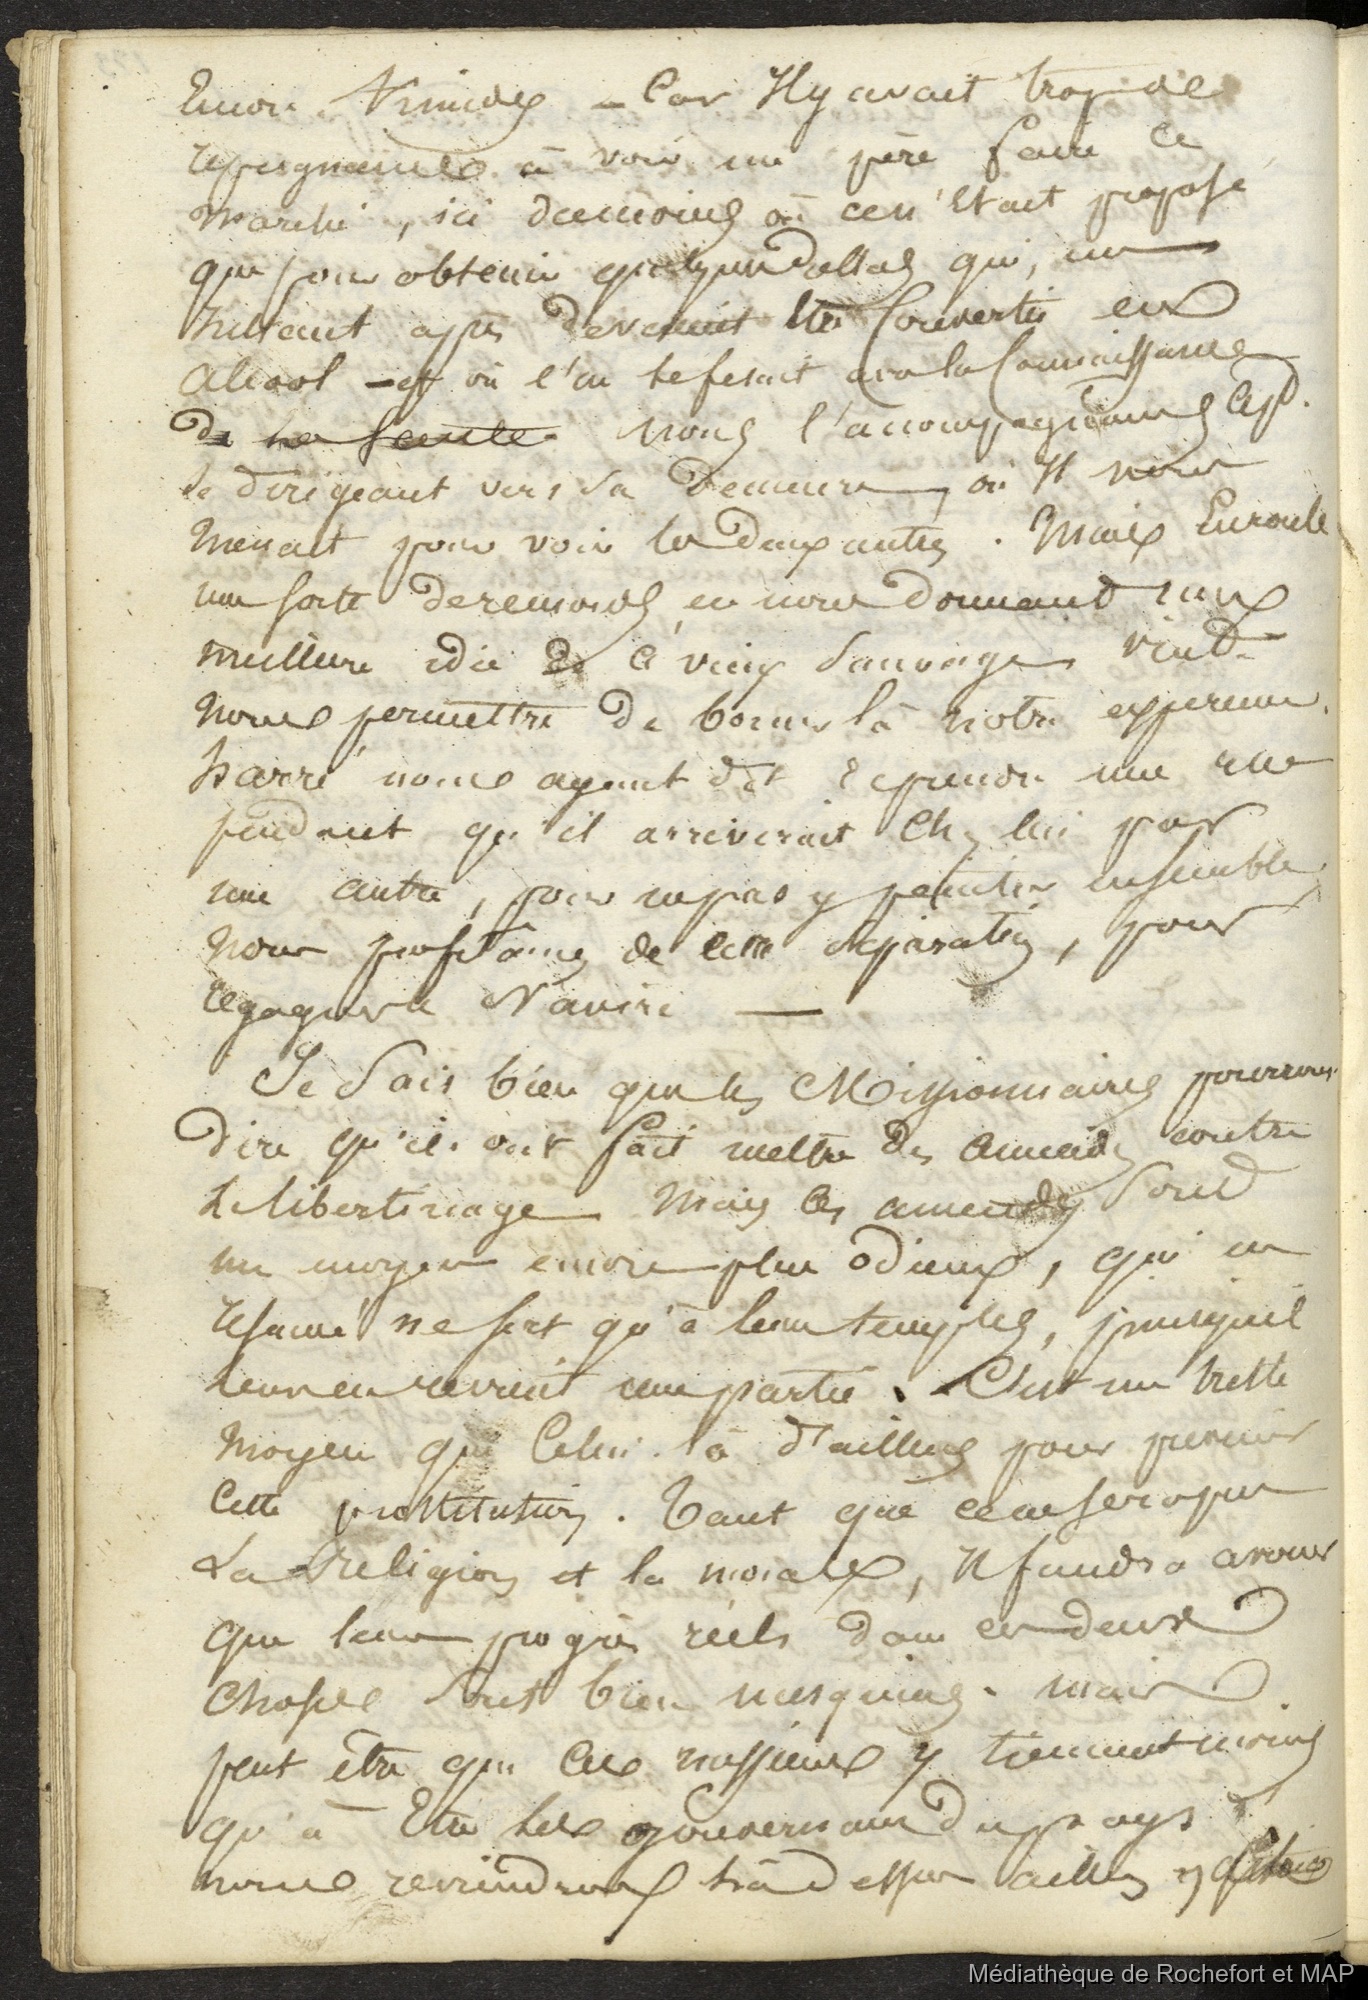 encore timides – Car Il y avait trop de
répugnance à voir un père faire ce
marché, ici du moins où ce n'était proposé
que pour obtenir quelques dollars qui, un
instant après devaient être convertis en
alcool – et où l'on le fesait avec la connaissance
de la seule. Nous l'accompagnâmes cepd.
se dirigeant vers sa demeure, où Il nous
menait pour voir les deux autres. Mais En route
une sorte de remords, en nous donnant une
meilleure idée de ce vieux Sauvage, vint
nous permettre de borner là notre expérience.
nous ayant dit de prendre une rue
pendant qu'il arriverait chez lui par
une autre, pour ne pas y pénétrer ensemble,
nous profitâmes de cette séparation, pour
regagner le Navire —
Je Sais bien que les Missionnaires pourront
dire qu'ils ont fait mettre des amendes contre
le libertinage Mais les amendes Sont
un moyen encore plus odieux, qui en
résumé ne sert qu'à leurs temples, puisqu'il
leur en revient une partie. C'est un triste
moyen que Celui-là d'ailleurs pour punir
cette prostitution. Tant que ce ne sera que
La religion et la morale, Il faudra avouer
que leurs progrès réels dans ces deux
choses Sont bien mesquins. mais
peut être que Ces messieurs y tiennent moins
qu'à Etre les gouverneurs du pays
nous reviendrons là dessus ailleurs
Médiathèque de Rochefort et MAP